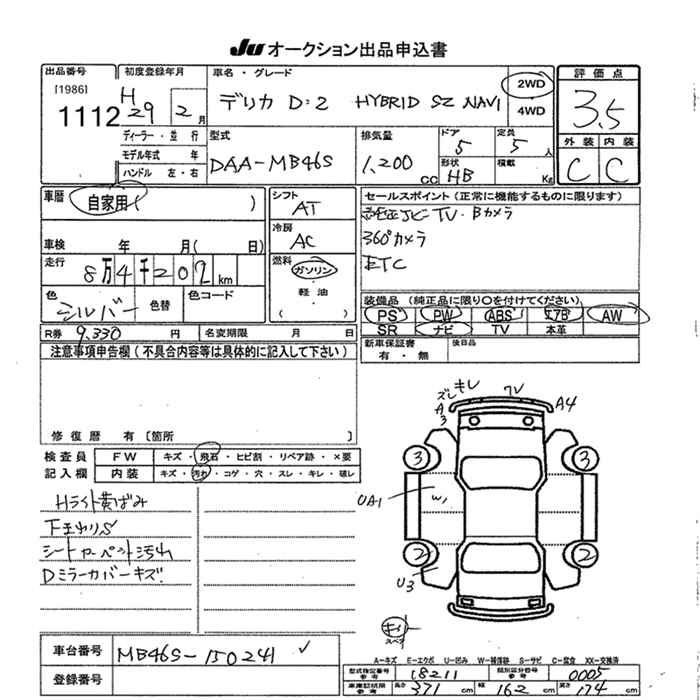 JU オークション出品申込書
出品番号
[1986]
1112
初度登録年月
H 29 2 月
車名・グレード
デリカ D:2 HYBRID SZ NAVI
2WD
4WD
評価点
3.5
外装 内装
C C
ディーラー・並行
モデル年式 年
ハンドル 左・右
型式
DAA-MB46S
排気量
1,200 cc
ドア
5
定員
5 人
形状
HB
積載
Kg
車歴
自家用( )
車検 年 月( 日)
走行
8万4千202km
色
シルバー
色替
色コード
シフト
AT
冷房
AC
燃料
ガソリン
軽油
( )
セールスポイント(正常に機能するものに限ります)
純正JC-TV・Bカメラ
360°カメラ
ETC
装備品(純正品に限り〇を付けてください)
PS PW ABS エアB AW
SR ナビ TV 本革
新車保証書
有・無
後日品
R券 9,330 円
名変期限 月 日
注意事項申告欄(不具合内容等は具体的に記入して下さい)
修復歴 有〔箇所 〕
検査員
記入欄
FW キズ・飛石・ヒビ割・リペア跡・×要
内装 キズ・汚れ・コゲ・穴・スレ・キレ・破レ
Hライト黄ばみ
下まわりS
シートカーペット汚れ
Dミラーカバーキズ
ズレ キレ
A3
ワレ
A4
3
3
UA1
W1
2
2
U3
キレ
スペア
車台番号
MB46S-150241
登録番号
A-キズ E-エクボ U-凹み W-補修跡 S-サビ C-腐食 XX-交換済
型式指定番号
参考
18211
類別区分番号
参考
0005
車庫証明用
参考
長さ 371 cm
幅 162 cm
高さ 174 cm